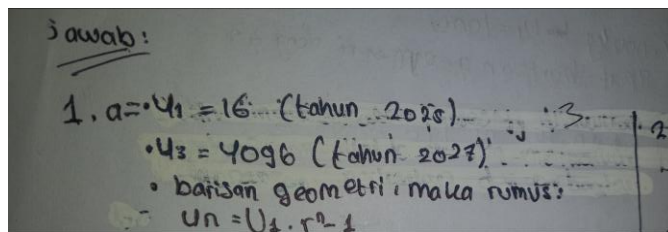 Jawab:
1. a=•U1 = 16 (tahun 2025)
3.
•U3 = 4096 (tahun 2027)
• barisan geometri, maka rumus:
Un = U1 . rⁿ-1